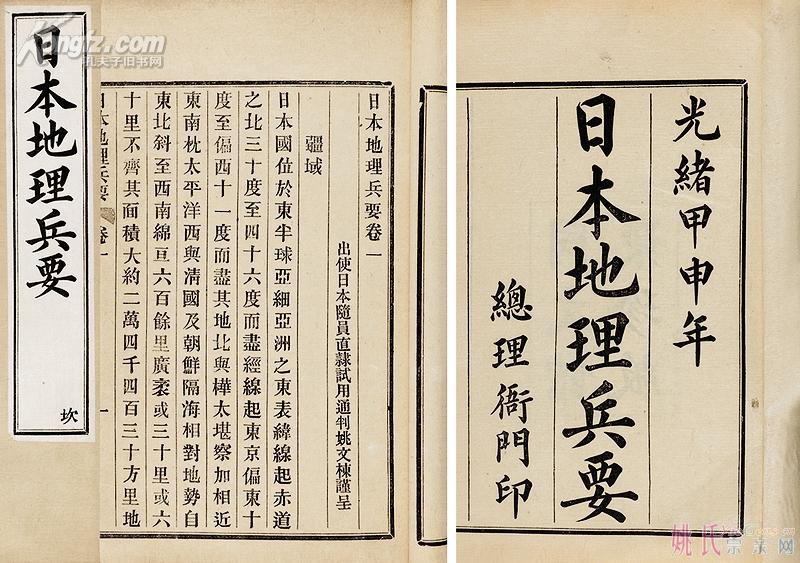 光緒甲申年
日本地理兵要
總理衙門印
日本地理兵要卷一
出使日本隨員直隸試用通判姚文棟謹呈
疆域
日本國位於東半球亞細亞洲之東表緯線起赤道
之北三十度至四十六度而盡經線起東京偏東十
度至偏西十一度而盡其地北與樺太堪察加相近
東南枕太平洋西與清國及朝鮮隔海相對地勢自
東北斜至西南綿亘六百餘里廣袤或三十里或六
十里不齊其面積大約二萬四千四百三十方里地
日本地理兵要 卷一 一
日本地理兵要 坎
孔夫子旧书网
姚氏宗亲网